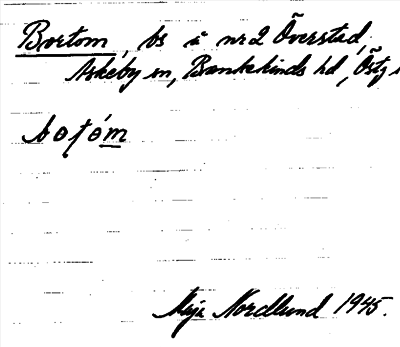 Bortom, bs i nr 2 Överstad,
Askeby sn, Bankekinds hd, Östg
botóm
Maja Nordlund 1945.